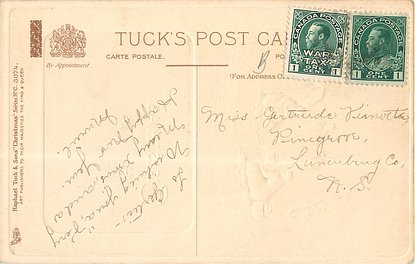 TUCK'S POST CARD
CARTE POSTALE.
(FOR ADDRESS ON
By Appointment
Raphael Tuck & Sons' "Christmas" Series Nº C. 3074.
ART PUBLISHERS TO THEIR MAJESTIES THE KING & QUEEN
CANADA POSTAGE
WAR
TAX
1 ONE CENT 1
CANADA POSTAGE
1 ONE CENT 1
B
To
Gertie:-
Wishing you a very
Merry Xmas and a
Happy New Year.
Miss Gertrude
Pinegrove
Lunenburg Co,
N. S.